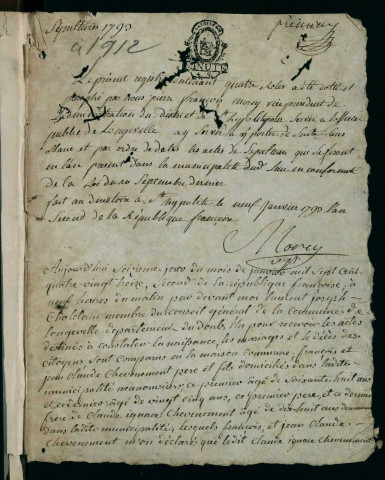 Sépultures 1793
à 1912
Le présent registre contenant quatre rôles a été cotté et
paraphé par nous pierre françois morey vice président de
l'administration du district de St hypolite pour servir à l'officier
public de Longevelle a y servir
et par ordre de dates les actes de sépulture qui se feront
en l'an présent dans la municipalité dud. lieu, en conformité
de la Loi du 20 Septembre dernier
fait au directoire à St hypolite le neuf Janvier 1793 l'an
Second de la République françoise
Morey
Aujourd'hui Seizieme jour du mois de janvier mil Sept cent
quatre vingt treize, Second de la république françoise, à
neuf heures du matin par devant moi Laurent joseph
Chatelain membre du conseil général de la commune de
longevelle département du doubs, élu pour recevoir les actes
destinés à constater la naissance, les mariages et le décès des
citoyens, Sont comparus en la maison commune, françois et
jean Claude Chevenement pere et fils domiciliés dans ladite
municipalité manouvriers, ce premier âgé de Soixante huit ans
et ce dernier âgé de vingt cinq ans, ce premier pere, et ce dernier
frere de Claude ignace chevenement âgé de dix huit ans demeurant
dans ladite municipalité, lesquels françois, et jean Claude
Chevenement m'on déclaré que ledit Claude ignace Chevenement